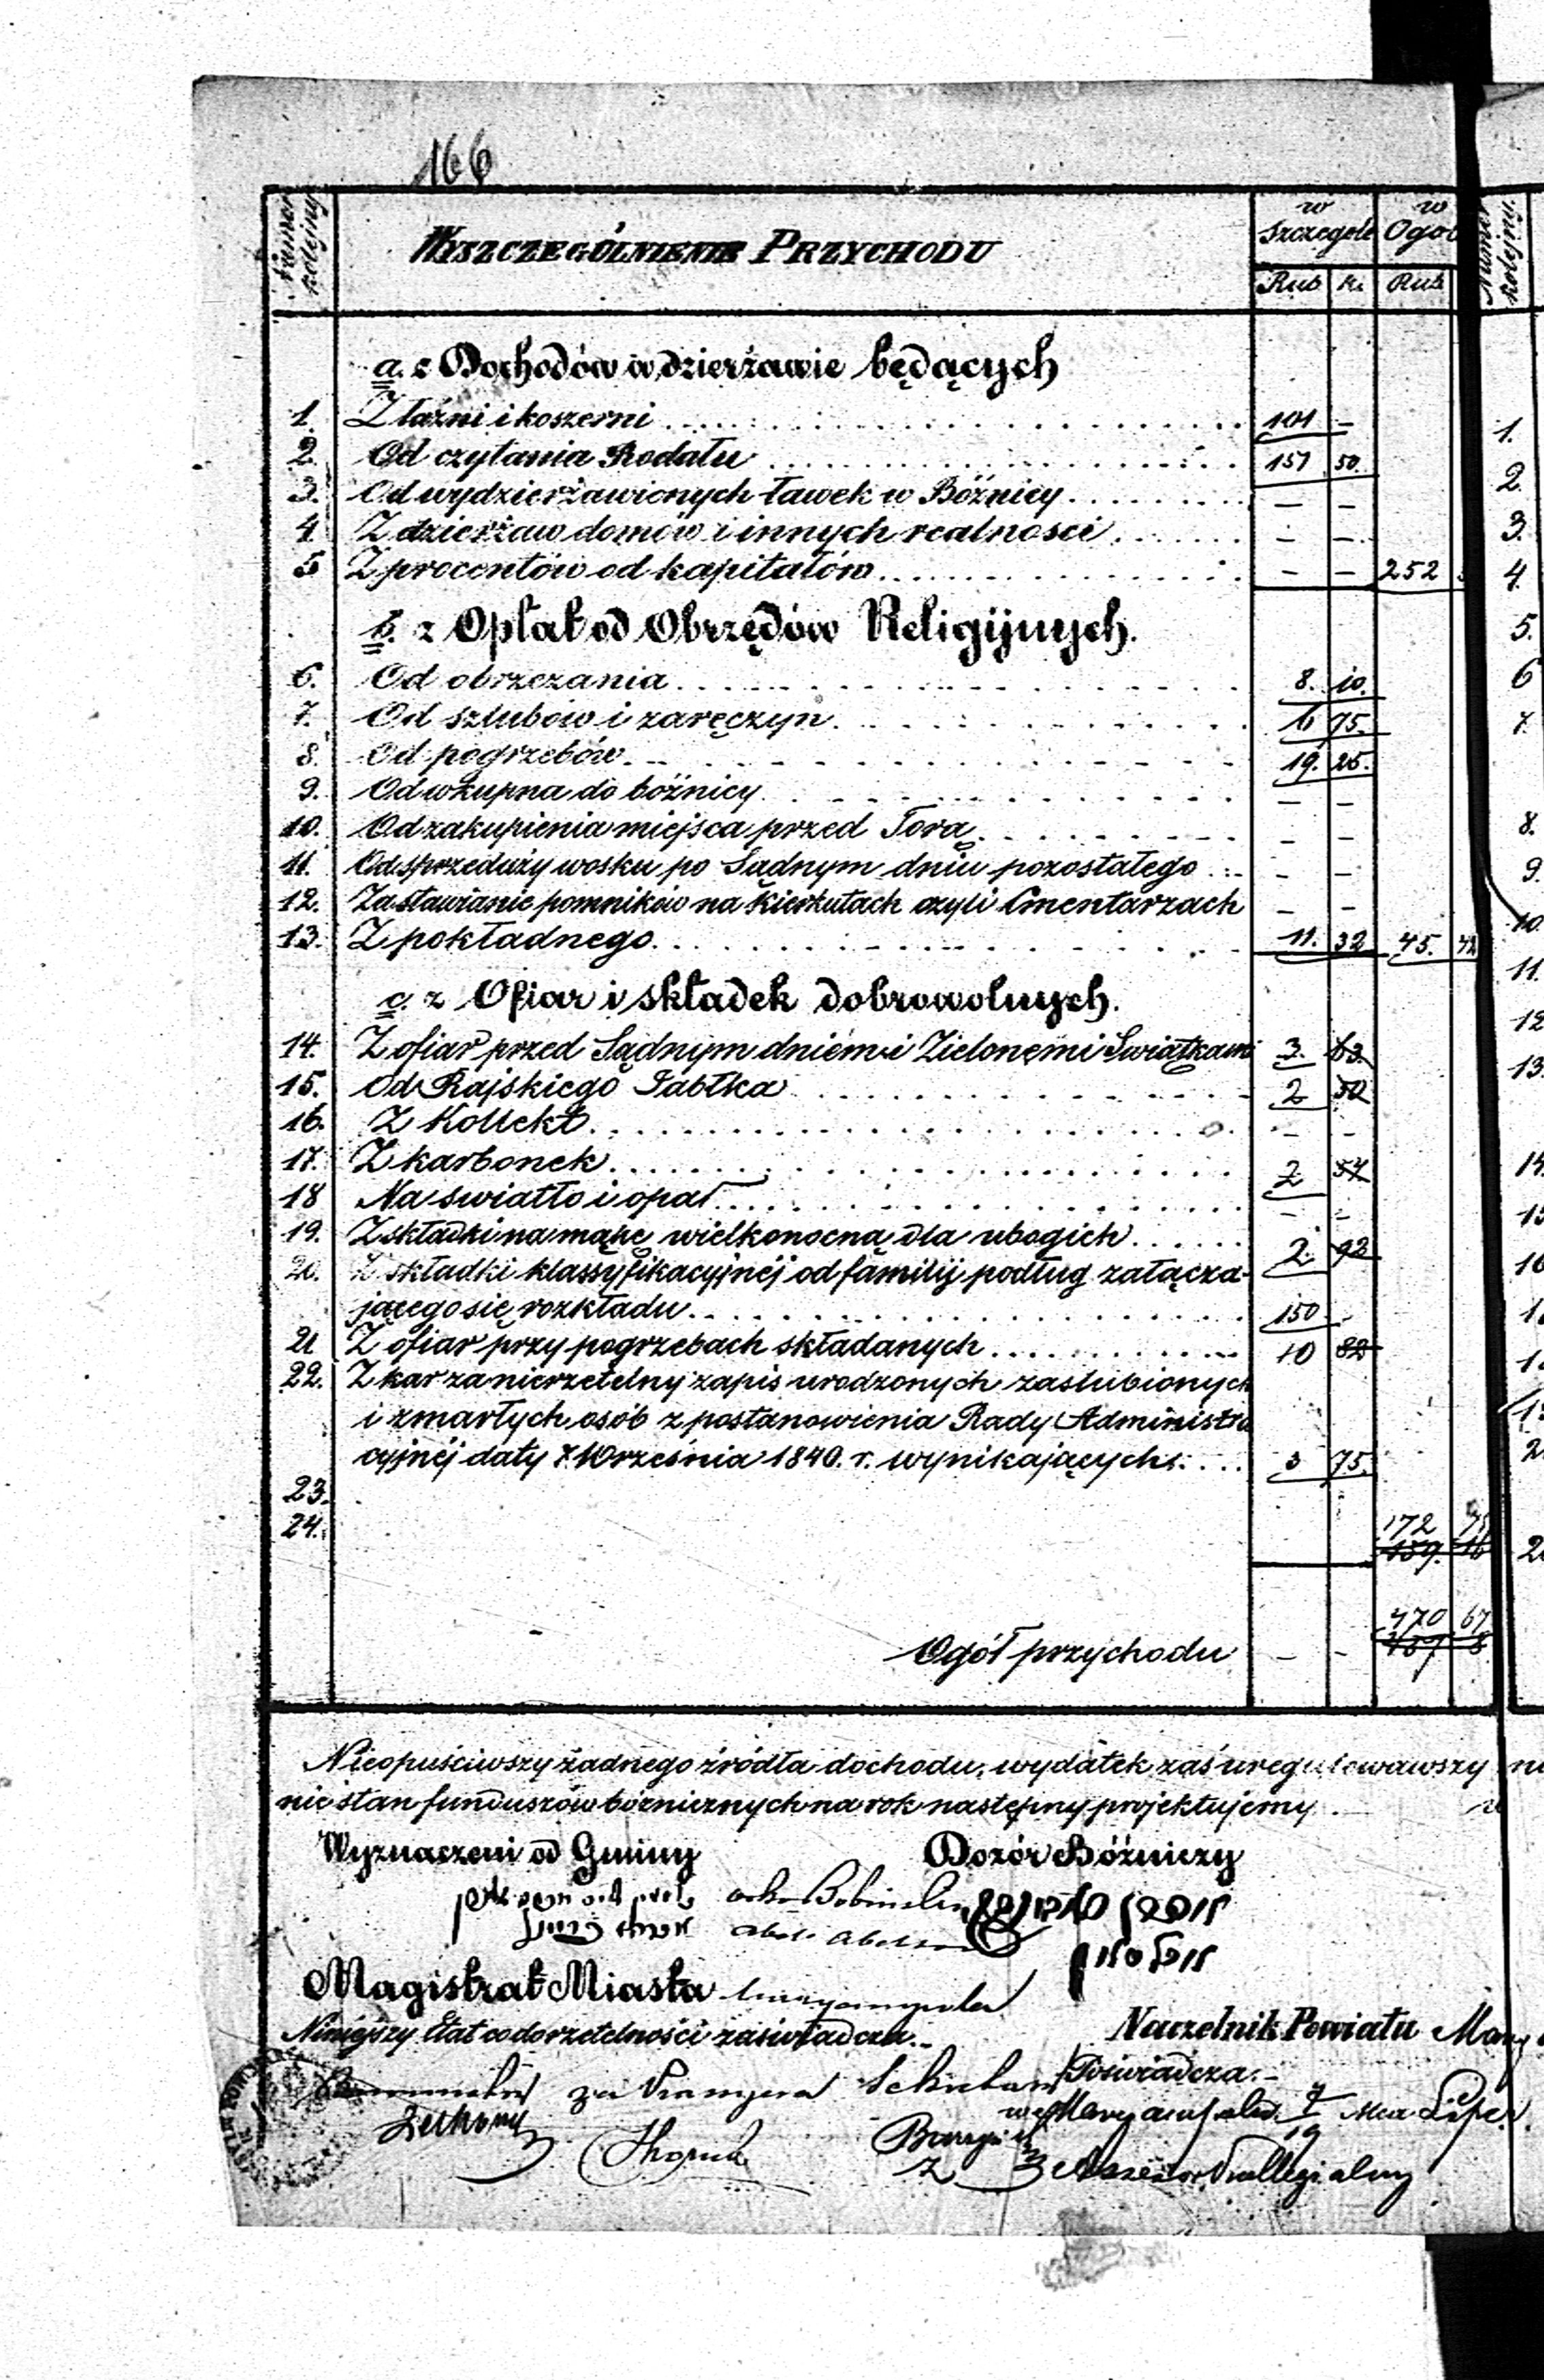 166
Numer kolejny
WYSZCZEGÓLNIENIE PRZYCHODU
w Szczególe
w Ogól
Rub K. Rub
Numer kolejny.
a. z Dochodów w dzierżawie będących
1. Z łaźni i koszerni 101 —
2. Od czytania Rodału 151 50.
3. Od wydzierżawionych ławek w Bóżnicy — —
4. Z dzierżaw domów i innych realności — —
5 Z procentów od kapitałów — — 252
b. z Opłat od Obrzędów Religijnych.
6. Od obrzezania 8. 10.
7. Od szlubów i zaręczyn 6 75.
8. Od pogrzebów 19. 25.
9. Od wkupna do bóżnicy — —
10. Od zakupienia miejsca przed Torą — —
11. Od sprzedaży wosku po Sądnym dniu pozostałego — —
12. Za stawianie pomników na Kierkutach czyli Cmentarzach — —
13. Z pokładnego 11. 32 45. 42
c. z Ofiar i składek dobrowolnych.
14. Z ofiar przed Sądnym dniem i Zielonemi Swiątkami 3. 63.
15. Od Rajskiego Jabłka 2 50
16. Z Kollekt — —
17. Z karbonek 2 57
18 Na swiatło i opał — —
19. Z składki na mąkę wielkonocną dla ubogich 2. 92
20. Z składki klassyfikacyjnéj od familij podług załącza-
jącego się rozkładu 150 —
21 Z ofiar przy pogrzebach składanych 10 82
22. Z kar za nierzetelny zapis urodzonych zaslubionych
i zmarłych osób z postanowienia Rady Administra
cyjnéj daty 7 Września 1840. r. wynikających 3 75.
23.
24. 172 75
159. 16
470 67
Ogół przychodu — — 457 8
Nieopuściwszy żadnego źródła dochodu, wydatek zaś uregulowawszy
nie stan funduszów bóżnicznych na rok następny projektujemy.
Wyznaczeni od Gminy Dozór Bóżniczy
Magistrat Miasta
Niniejszy Etat co do rzetelności zaświadcza
Naczelnik Powiatu
Poświadcza.
Assessor Kollegialny